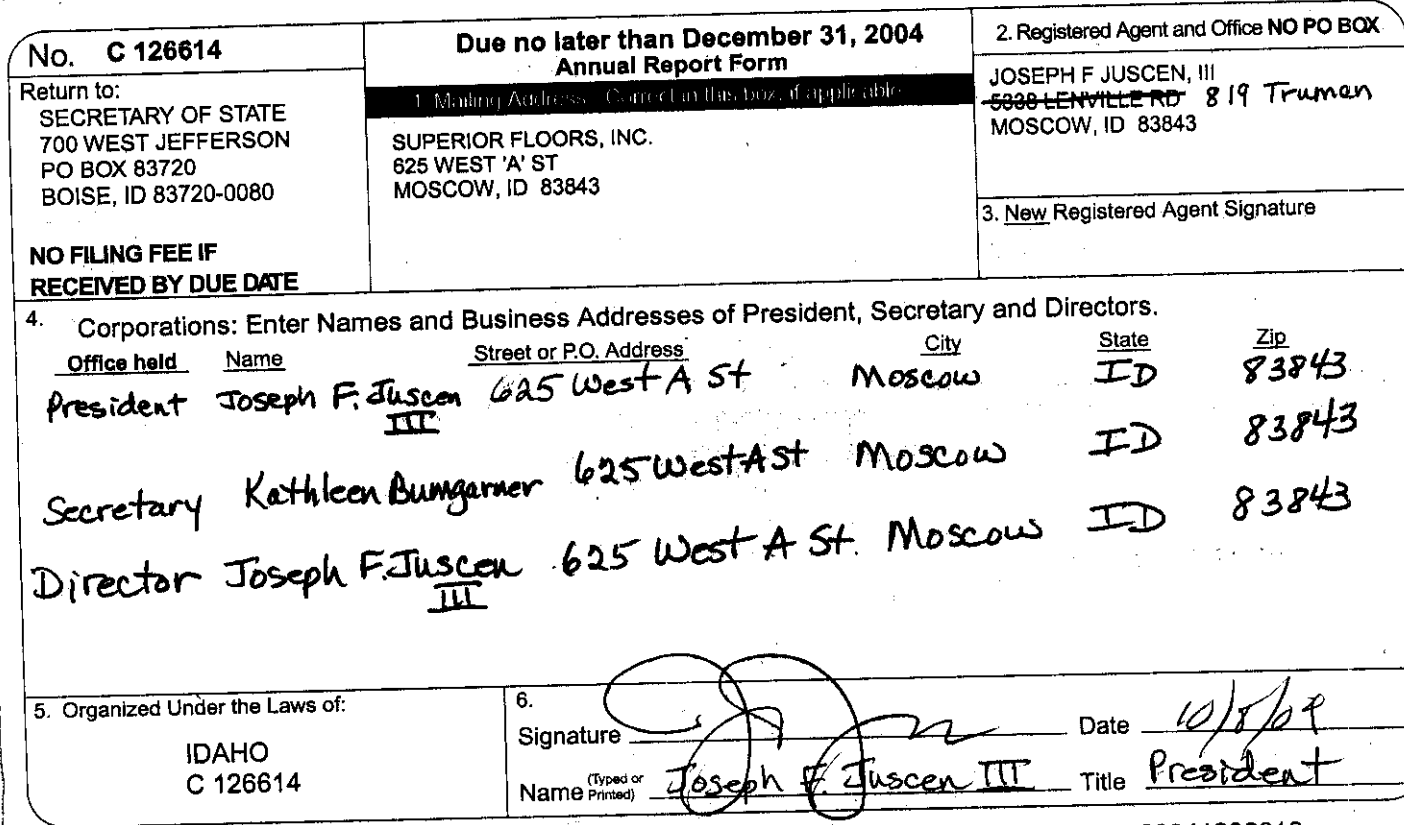 No. C 126614
Return to:
SECRETARY OF STATE
700 WEST JEFFERSON
PO BOX 83720
BOISE, ID 83720-0080
NO FILING FEE IF
RECEIVED BY DUE DATE
Due no later than December 31, 2004
Annual Report Form
1. Mailing Address: Correct in this box, if applicable
SUPERIOR FLOORS, INC.
625 WEST 'A' ST
MOSCOW, ID 83843
2. Registered Agent and Office NO PO BOX
JOSEPH F JUSCEN, III
5338 LENVILLE RD 819 Truman
MOSCOW, ID 83843
3. New Registered Agent Signature
4. Corporations: Enter Names and Business Addresses of President, Secretary and Directors.
Office held Name Street or P.O. Address City State Zip
President Joseph F. Juscen III 625 West A St Moscow ID 83843
Secretary Kathleen Bumgarner 625 West A St Moscow ID 83843
Director Joseph F. Juscen III 625 West A St. Moscow ID 83843
5. Organized Under the Laws of:
IDAHO
C 126614
6.
Signature Date 10/8/04
Name (Typed or Printed) Joseph F. Juscen III Title President